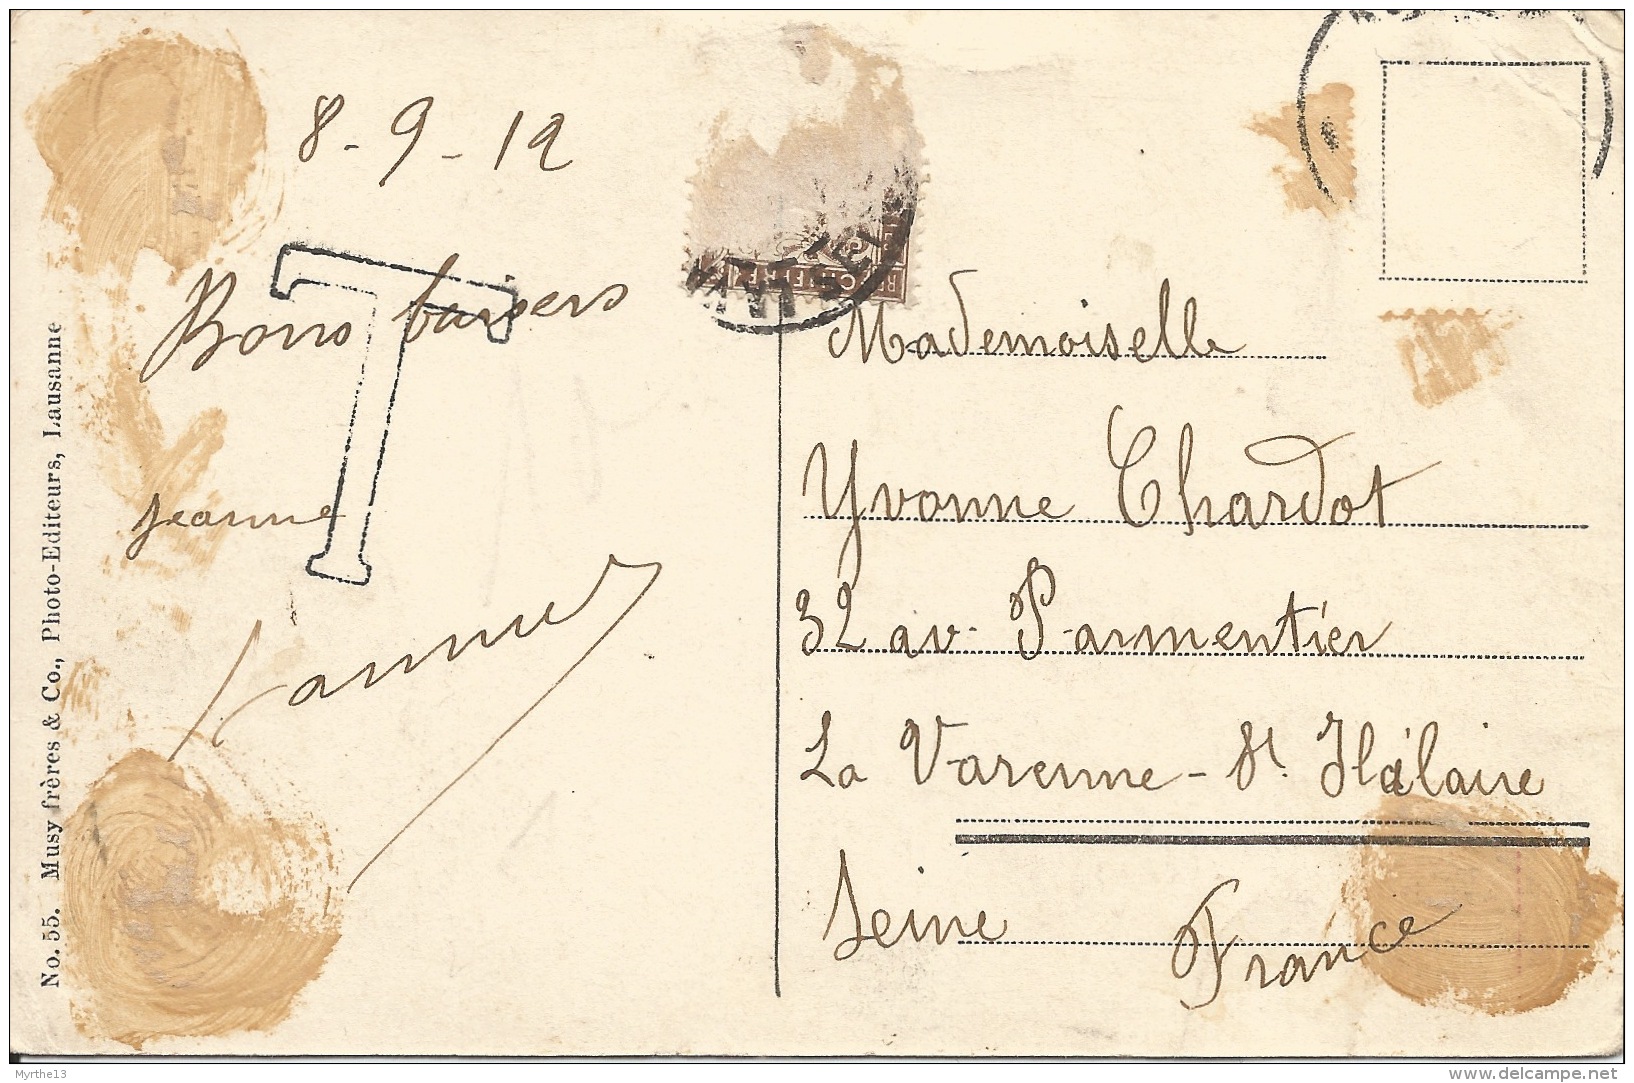 8-9-12
Bons baisers
Jeanne
T
Mademoiselle
Yvonne Chardot
32 av. Parmentier
La Varenne-St. Hilaire
Seine
France
No. 55. Musy frères & Co., Photo-Editeurs, Lausanne
Myrthe13
delcampe.net